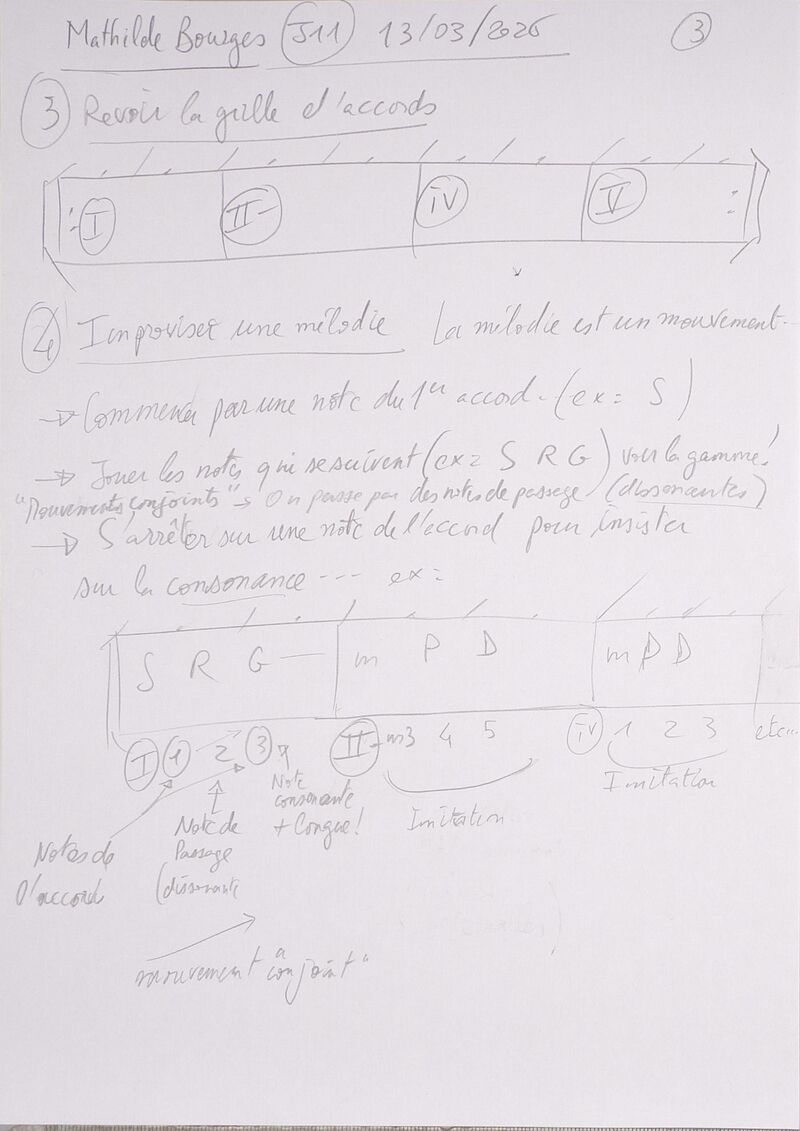 Mathilde Bourges J11 13/03/2026 3
3 Revoir la grille d'accords
I II- IV V
4 Improviser une mélodie La mélodie est un mouvement...
→ Commencer par une note du 1er accord. (ex = S)
→ Jouer les notes qui se suivent (ex = S R G) voir la gamme!
"Mouvements conjoints" → On passe par des notes de passage (dissonantes)
→ S'arrêter sur une note de l'accord pour insister
sur la consonance --- ex =
S R G — m P D m P D
I 1 2 3 II- m3 4 5 IV 1 2 3 etc...
Note
consonante
+ longue!
Imitation
Imitation
Note de
Passage
(dissonante
Notes de
l'accord
mouvement "conjoint"